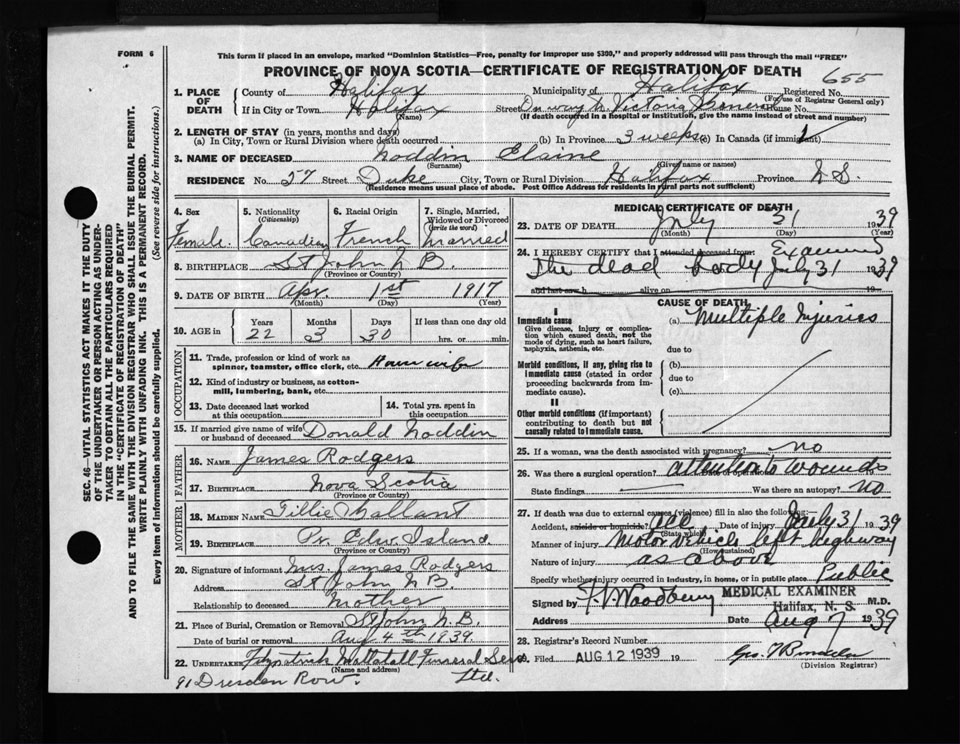 FORM 6
This form if placed in an envelope, marked "Dominion Statistics—Free, penalty for improper use $300," and properly addressed will pass through the mail "FREE"
PROVINCE OF NOVA SCOTIA—CERTIFICATE OF REGISTRATION OF DEATH 655
SEC. 46—VITAL STATISTICS ACT MAKES IT THE DUTY
OF THE UNDERTAKER OR PERSON ACTING AS UNDER-
TAKER TO OBTAIN ALL THE PARTICULARS REQUIRED
IN THE "CERTIFICATE OF REGISTRATION OF DEATH"
AND TO FILE THE SAME WITH THE DIVISION REGISTRAR WHO SHALL ISSUE THE BURIAL PERMIT.
WRITE PLAINLY WITH UNFADING INK. THIS IS A PERMANENT RECORD.
Every Item of information should be carefully supplied. (See reverse side for instructions.)
1. PLACE OF DEATH
County of Halifax Municipality of Halifax Registered No.
(For use of Registrar General only)
If in City or Town Halifax Street Victoria General House No.
(Name) (If death occurred in a hospital or institution, give the name instead of street and number)
2. LENGTH OF STAY (in years, months and days)
(a) In City, Town or Rural Division where death occurred (b) In Province 3 weeks (c) In Canada (if immigrant)
3. NAME OF DECEASED Noddin Elsine
(Surname) (Given name or names)
RESIDENCE No. 57 Street Duke City, Town or Rural Division Halifax Province N S.
(Residence means usual place of abode. Post Office Address for residents in rural parts not sufficient)
4. Sex Female.
5. Nationality (Citizenship) Canadian
6. Racial Origin French
7. Single, Married, Widowed or Divorced (write the word) Married
8. BIRTHPLACE St John N B.
(Province or Country)
9. DATE OF BIRTH Apr. 1st 1917
(Month) (Day) (Year)
10. AGE in Years 22 Months 3 Days 30 If less than one day old hrs. or min.
OCCUPATION
11. Trade, profession or kind of work as spinner, teamster, office clerk, etc. House wife
12. Kind of industry or business, as cotton-mill, lumbering, bank, etc.
13. Date deceased last worked at this occupation
14. Total yrs. spent in this occupation
15. If married give name of wife or husband of deceased Donald Noddin
FATHER
16. Name James Rodgers
17. Birthplace Nova Scotia
(Province or Country)
MOTHER
18. Maiden Name Tillie Gallant
19. Birthplace Pr. Edw. Island.
(Province or Country)
20. Signature of informant Mrs. James Rodgers
Address St John N B.
Relationship to deceased mother
21. Place of Burial, Cremation or Removal St John N. B.
Date of burial or removal Aug 4th 1939.
22. Undertaker Fitzpatrick Mattatall Funeral Serv. Ltd.
(Name and address)
91 Dresden Row.
MEDICAL CERTIFICATE OF DEATH
23. DATE OF DEATH July 31 1939
(Month) (Day) (Year)
24. I HEREBY CERTIFY that I attended deceased from: Examined
The dead body July 31 1939
and last saw h alive on 19
CAUSE OF DEATH
I
Immediate cause
Give disease, injury or complication which caused death, not the mode of dying, such as heart failure, asphyxia, asthenia, etc.
(a) Multiple Injuries
due to
Morbid conditions, if any, giving rise to immediate cause (stated in order proceeding backwards from immediate cause).
(b)
due to
(c)
II
Other morbid conditions (if important) contributing to death but not causally related to immediate cause.
25. If a woman, was the death associated with pregnancy? no
26. Was there a surgical operation? attention to wounds
State findings Was there an autopsy? no
27. If death was due to external causes (violence) fill in also the following:—
Accident, suicide or homicide? acc Date of injury July 31 1939
(State which)
Manner of injury Motor vehicle left highway
(How sustained)
Nature of injury as above
Specify whether injury occurred in industry, in home, or in public place Public
Signed by F. V. Woodbury MEDICAL EXAMINER M.D.
Halifax, N. S.
Address Date Aug 7 1939
28. Registrar's Record Number
29. Filed AUG 12 1939 19
(Division Registrar)